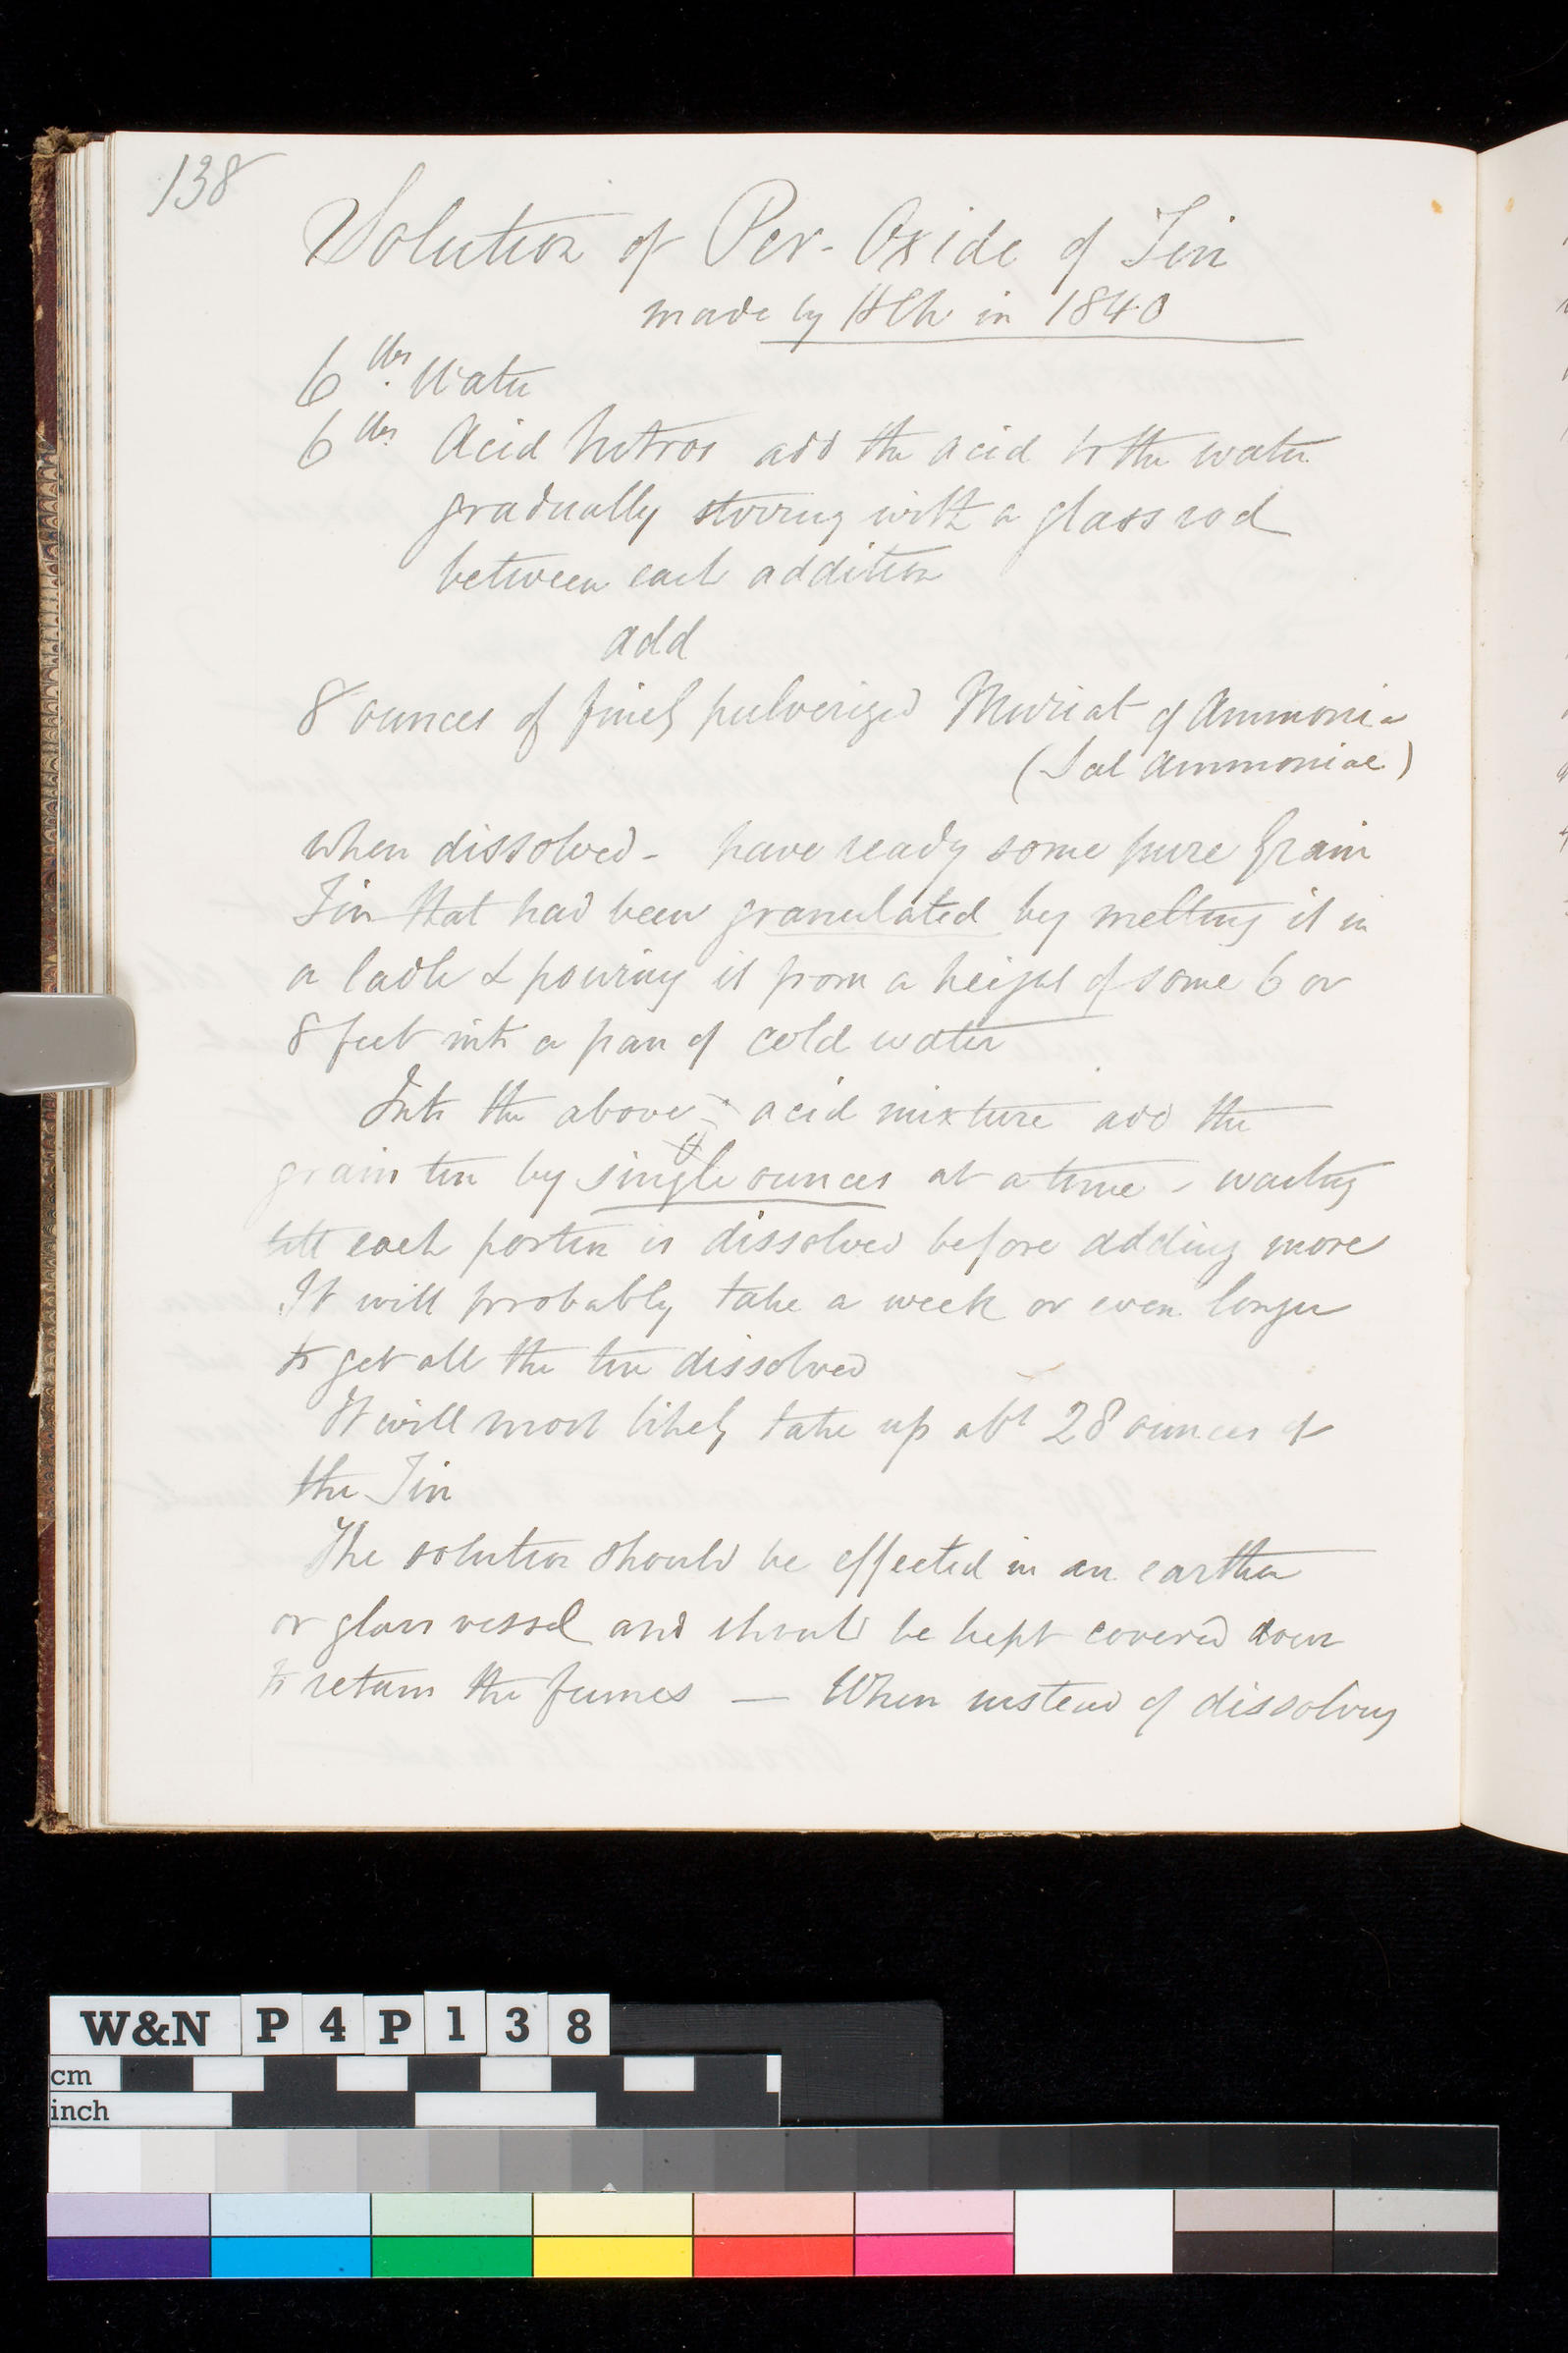 138
Solution of Per-Oxide of Tin
made by HCh in 1840
6 lbs. Water
6 lbs Acid Nitros add the acid to the water
gradually stirring with a glass rod
between each addition
add
8 ounces of finely pulverized Muriat of Ammonia
(Sal Ammoniac)
when dissolved - have ready some pure Grain
Tin that had been granulated by melting it in
a ladle & pouring it from a height of some 6 or
8 feet into a pan of cold water
Into the above acid mixture add the
grain tin by single ounces at a time - waiting
till each portion is dissolved before adding more
It will probably take a week or even longer
to get all the tin dissolved
It will most likely take up abt 28 ounces of
the Tin
The solution should be effected in an earthen
or glass vessel and should be kept covered down
to return the fumes — When instead of dissolving
W&N P4P138
cm
inch